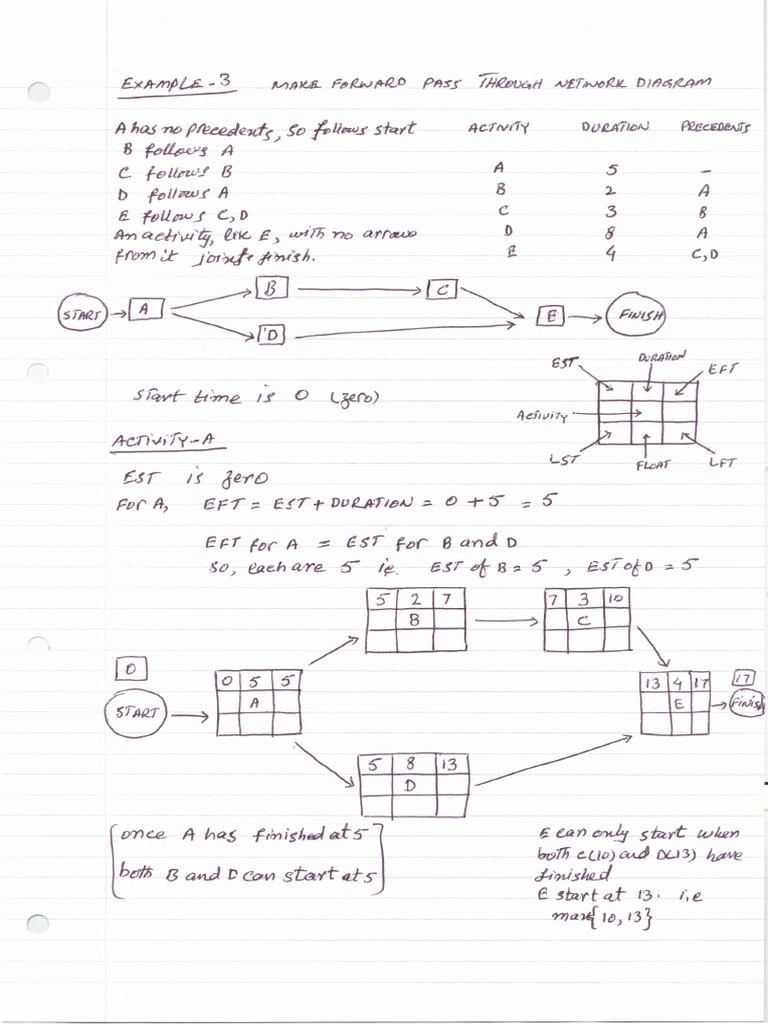 EXAMPLE-3 MAKE FORWARD PASS THROUGH NETWORK DIAGRAM
A has no precedents, so follows start
B follows A
C follows B
D follows A
E follows C, D
An activity, like E, with no arrows
from it joints finish.
ACTIVITY DURATION PRECEDENTS
A 5 -
B 2 A
C 3 B
D 8 A
E 4 C, D
START A B C D E FINISH
Start time is 0 (zero)
EST DURATION EFT
ACTIVITY
LST FLOAT LFT
ACTIVITY-A
EST is zero
FOR A, EFT = EST + DURATION = 0 + 5 = 5
EFT for A = EST for B and D
so, each are 5 ie. EST of B = 5 , EST of D = 5
5 2 7
B
7 3 10
C
0
START
0 5 5
A
13 4 17
E
17
FINISH
5 8 13
D
once A has finished at 5
both B and D can start at 5
E can only start when
both C(10) and D(13) have
finished
E start at 13. i.e
max{10, 13}